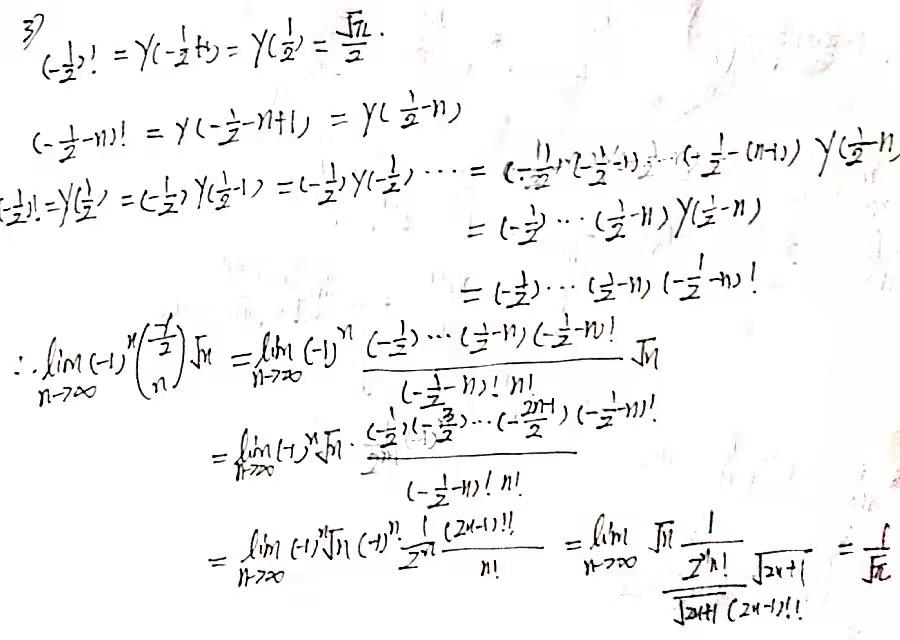 3) (-1/2)! = γ(-1/2+1) = γ(1/2) = √π/2.
(-1/2-n)! = γ(-1/2-n+1) = γ(1/2-n)
(-1/2)! = γ(1/2) = (-1/2)γ(1/2-1) = (-1/2)γ(-1/2) ⋯ = (-1/2)(-1/2-1)⋯(-1/2-(n-1)) γ(1/2-n)
= (-1/2)⋯(1/2-n)γ(1/2-n)
= (-1/2)⋯(1/2-n)(-1/2-n)!
∴ lim_{n→∞} (-1)^n \binom{-1/2}{n} √n = lim_{n→∞} (-1)^n \frac{(-1/2)⋯(1/2-n)(-1/2-n)!}{(-1/2-n)! n!} √n
= lim_{n→∞} (-1)^n √n · \frac{(-1/2)(-3/2)⋯(-\frac{2n-1}{2})(-1/2-n)!}{(-1/2-n)! n!}
= lim_{n→∞} (-1)^n √n (-1)^n \frac{1}{2^n} \frac{(2n-1)!!}{n!} = lim_{n→∞} √n \frac{1}{\frac{2^n n!}{√(2n+1) (2n-1)!!} √(2n+1)} = \frac{1}{√π}